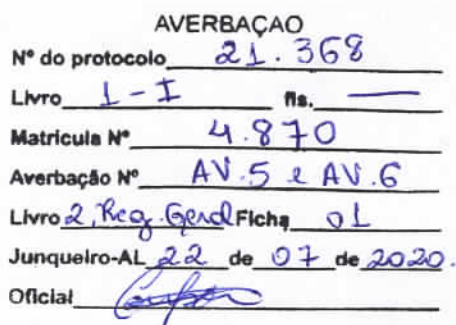 AVERBAÇAO
Nº do protocolo 21.368
Livro 1-I fls. —
Matricula Nº 4.870
Averbação Nº AV.5 e AV.6
Livro 2, Reg. Geral Ficha 01
Junqueiro-AL 22 de 07 de 2020.
Oficial